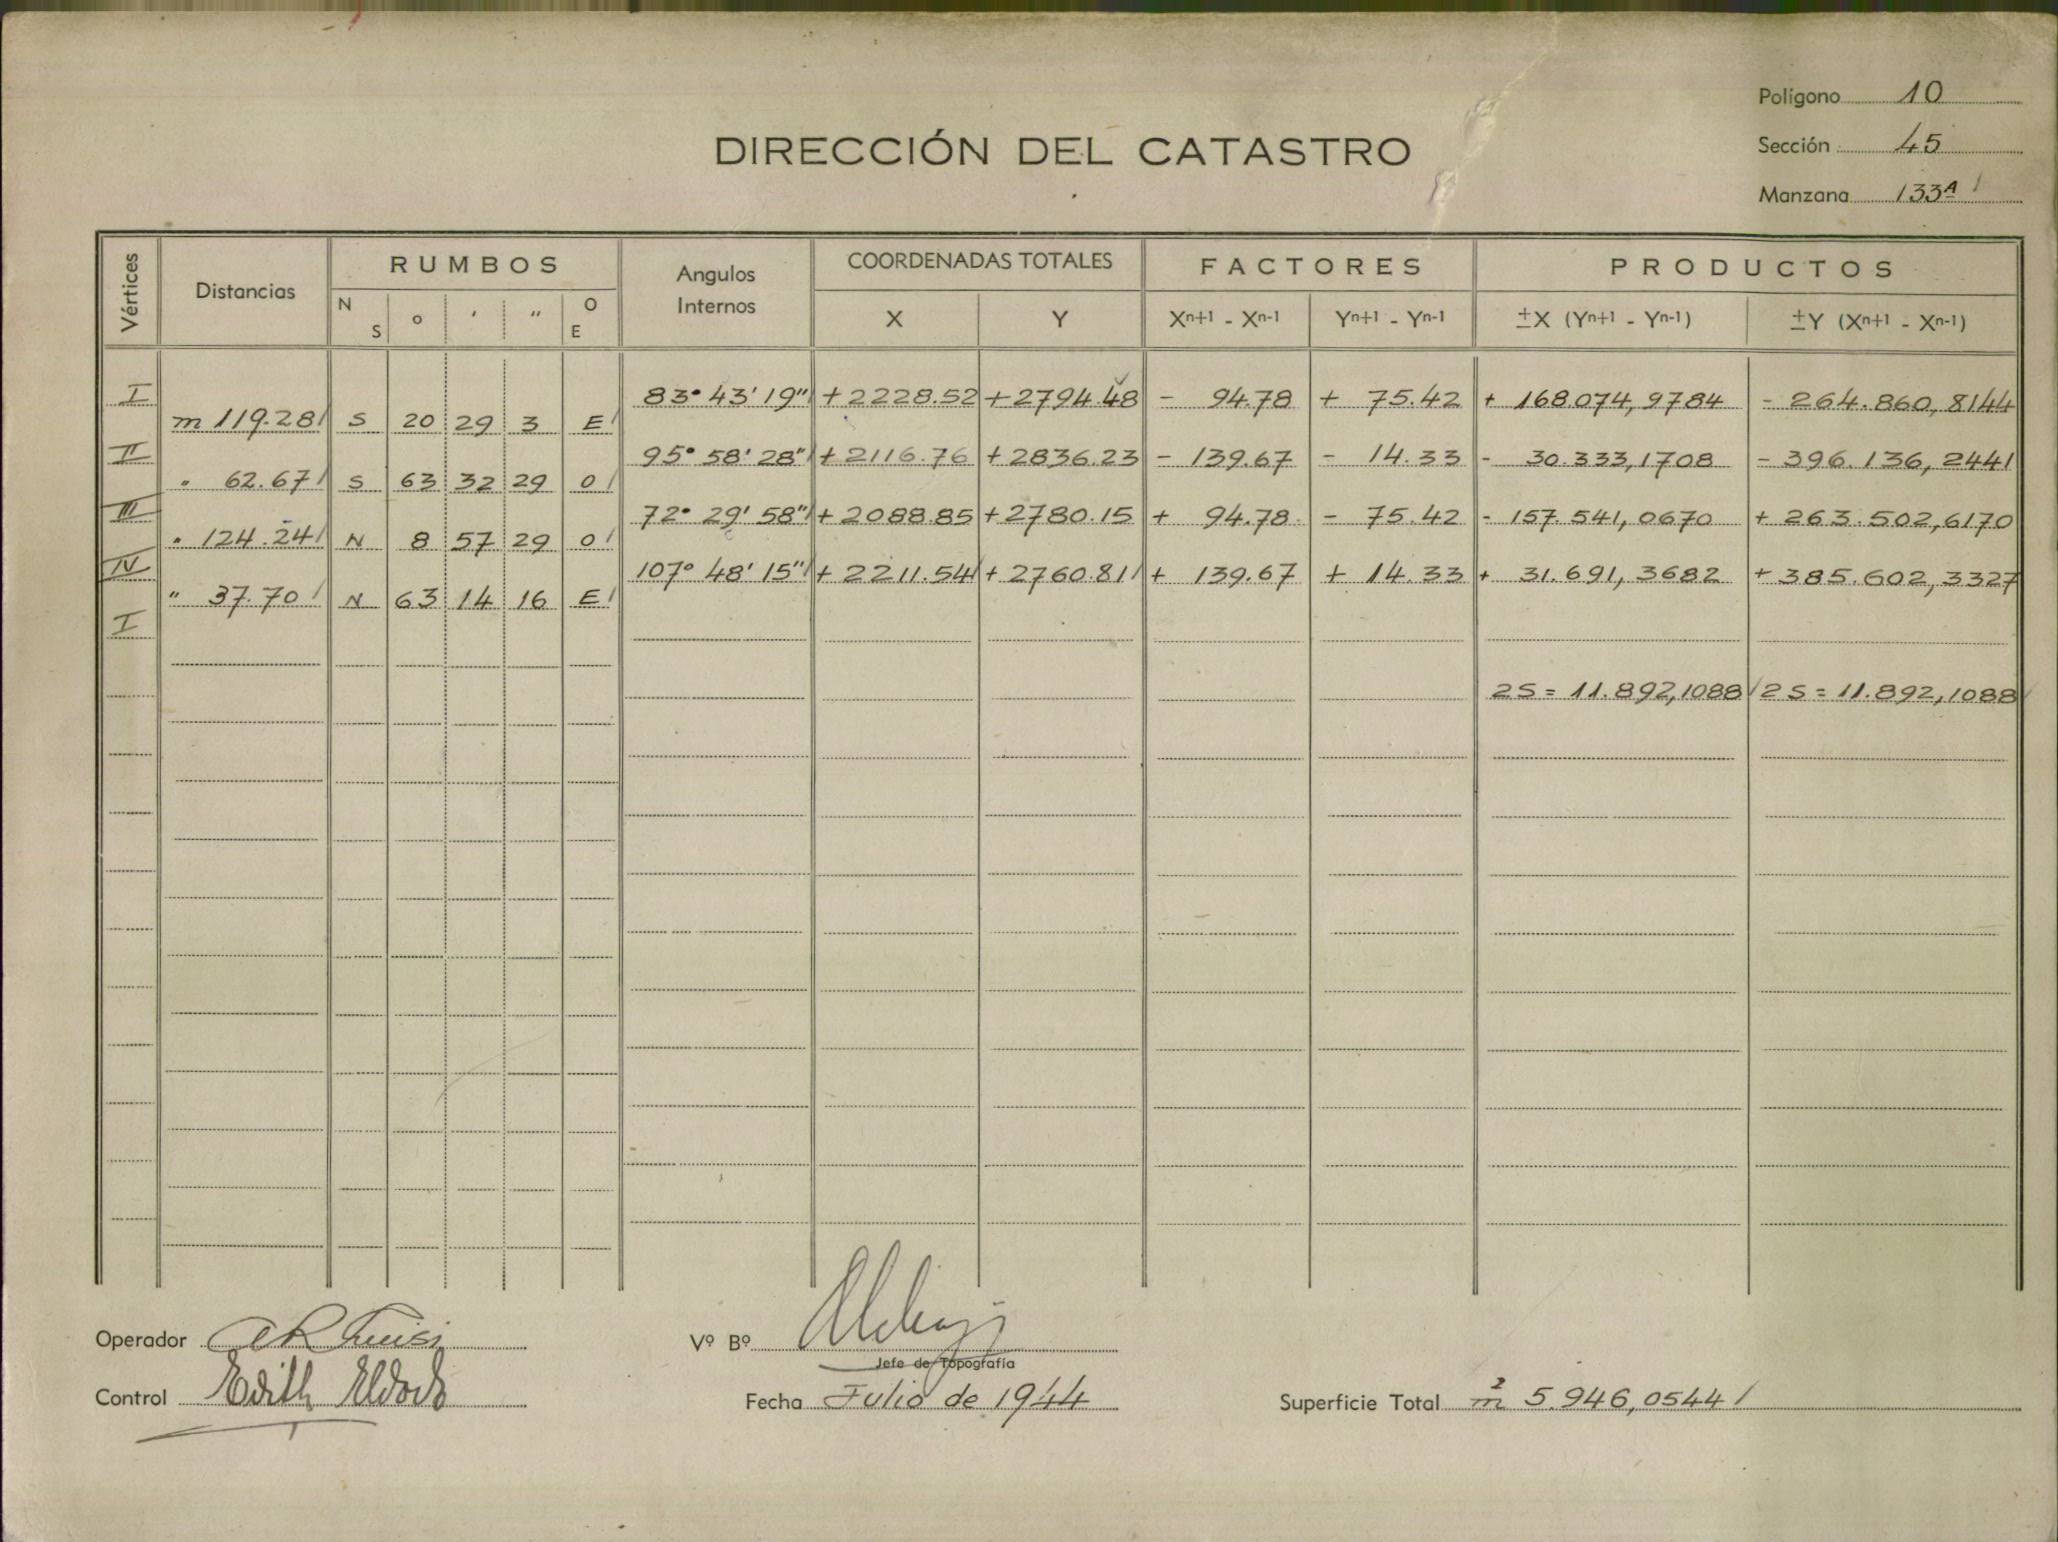 Polígono 10
DIRECCIÓN DEL CATASTRO
Sección 45
Manzana 133A
Vértices Distancias RUMBOS Angulos Internos COORDENADAS TOTALES FACTORES PRODUCTOS
N S ° ' " O E X Y Xn+1 - Xn-1 Yn+1 - Yn-1 ±X (Yn+1 - Yn-1) ±Y (Xn+1 - Xn-1)
I 83° 43' 19" +2228.52 +2794.48 - 94.78 + 75.42 + 168.074,9784 - 264.860,8144
m 119.28 S 20 29 3 E
II 95° 58' 28" +2116.76 +2836.23 - 139.67 - 14.33 - 30.333,1708 - 396.136,2441
" 62.67 S 63 32 29 O
III 72° 29' 58" +2088.85 +2780.15 + 94.78 - 75.42 - 157.541,0670 + 263.502,6170
" 124.24 N 8 57 29 O
IV 107° 48' 15" +2211.54 +2760.81 + 139.67 + 14.33 + 31.691,3682 + 385.602,3327
" 37.70 N 63 14 16 E
I
2S = 11.892,1088 2S = 11.892,1088
Operador
Vº Bº
Jefe de Topografía
Control Edith
Fecha Julio de 1944
Superficie Total m2 5.946,0544